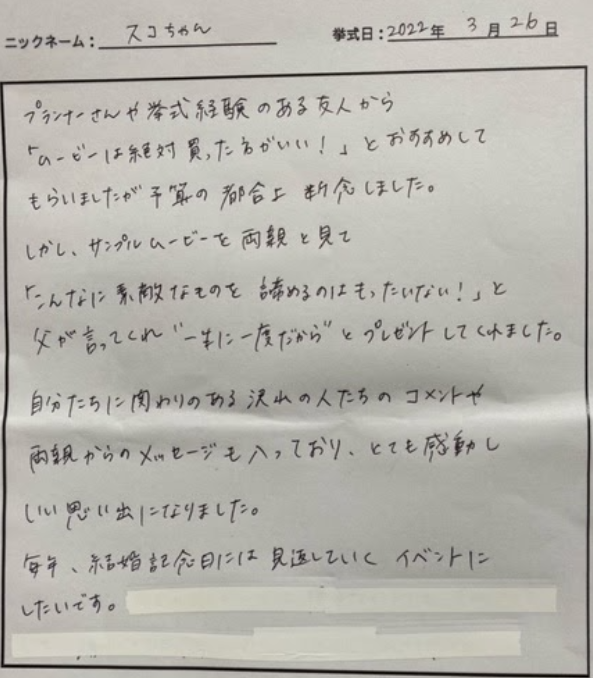 ニックネーム：スコちゃん 挙式日：2022年 3月 26日
プランナーさんや挙式経験のある友人から
「ムービーは絶対買った方がいい！」とおすすめして
もらいましたが予算の都合上断念しました。
しかし、サンプルムービーを両親と見て
「こんなに素敵なものを諦めるのはもったいない！」と
父が言ってくれ"一生に一度だから"とプレゼントしてくれました。
自分たちに関わりのある沢山の人たちのコメントや
両親からのメッセージも入っており、とても感動し
いい思い出になりました。
毎年、結婚記念日には見返していくイベントに
したいです。